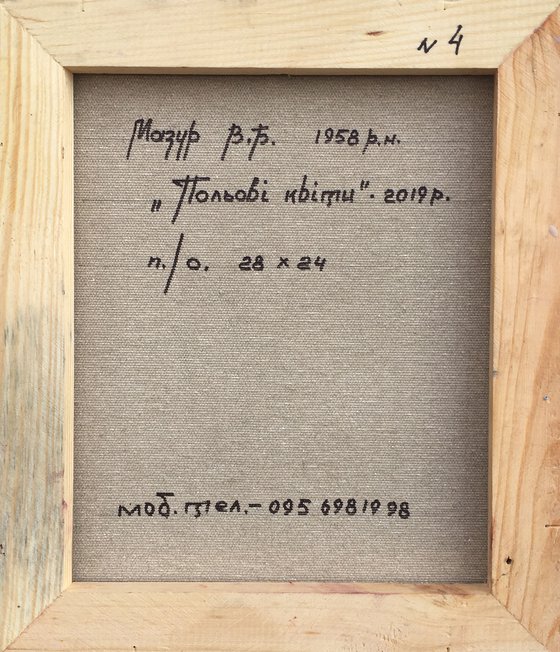 N 4
Мазур В.Б. 1958 р.н.
„Польові квіти". 2019 р.
п./о. 28 × 24
моб. тел. – 095 6981998